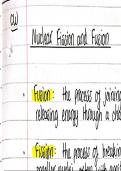 CW
Nuclear Fission and Fusion
• Fusion: the process of joining
releasing energy through a cha
• Fission: the process of breakin